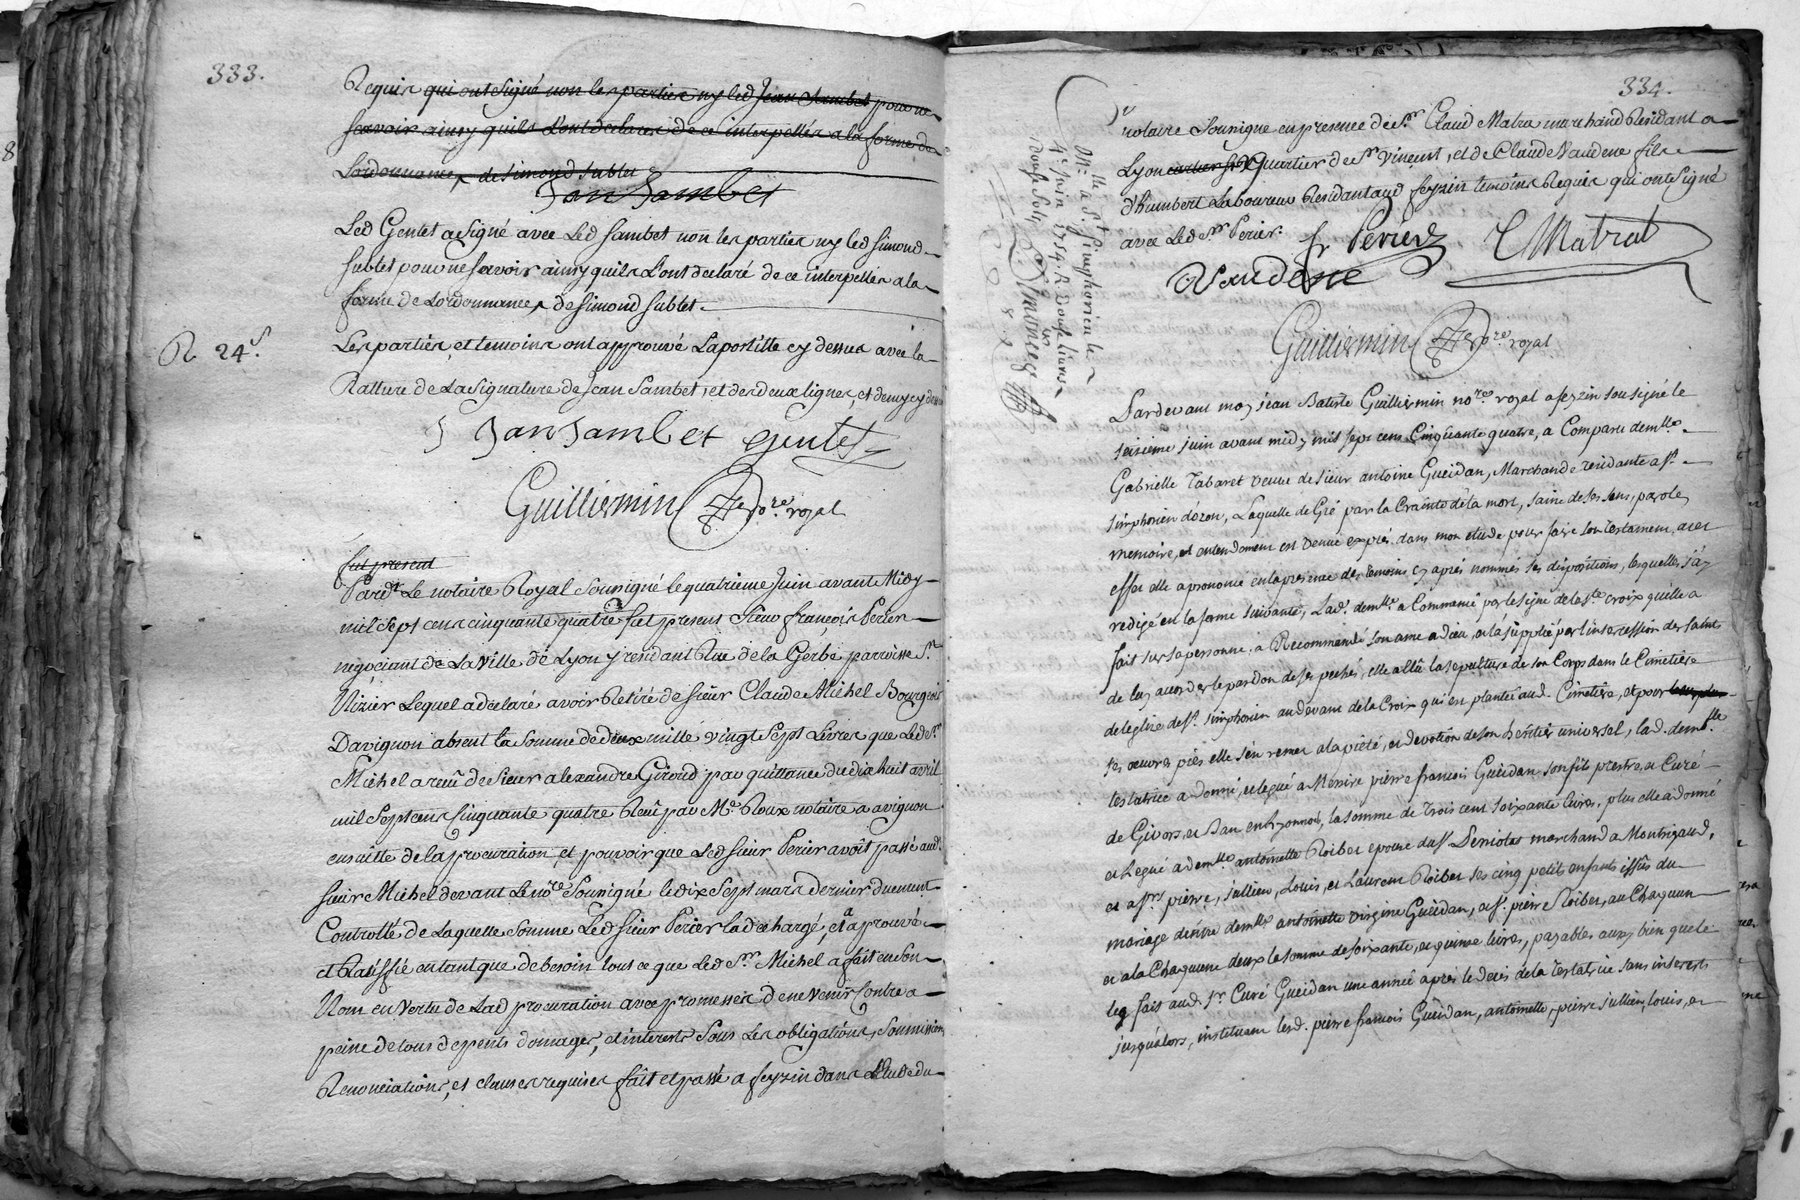 333.
Requis qui ont signé non les parties ny led Jean Sambet pour ne
scavoir ainsy quils l'ont declaré de ce interpellés a la forme de
Lordonnance, de simond sublet
Jan Sambet
Led Gentet a signé avec Led Sambet non les parties ny led simond
sublet pour ne scavoir ainsy quils l'ont declaré de ce interpellés a la
forme de Lordonnance, de simond sublet.
R 24 s.
Les parties, et temoins ont approuvé Lapostille cy dessus avec la
Rature de La signature de Jean Sambet, et des deux lignes, et demy cy
Jan Sambet Gentet
Guilliermin no.re royal
fut present
Pard.t Le notaire Royal Soussigné le quatrieme Juin avant Midy
mil sept cens cinquante quatre fut present Sieur françois Perier
negociant de La ville de Lyon y residant Rue de la Gerbe parroisse S.t
Nizier Lequel a declaré avoir Retiré de sieur Claude Michel Bourgeois
Davignon absent la Somme de deux mille vingt sept Livres que Led S.r
Michel a reçû de Sieur alexandre Giroud par quittance du dix huit avril
mil sept cens cinquante quatre Reçû par M.e Roux notaire a avignon
ensuitte de la procuration, et pouvoir que Led sieur Perier avoit passé aud.
sieur Michel devant Le no.re Soussigné le dix sept mars dernier duement
Controllé de Laquelle somme Led sieur Perier la dechargé, et a prouvé
et Ratiffié en tant que de besoin tout ce que Led S.r Michel a fait en son
Nom en vertu de Lad procuration avec promesses de ne venir contre a
peine de tous depents domages, et interests sous Les obligations, soumissions
Renonciations, et clauses requises fait et passé a feyzin dans Létude du
334.
notaire Soussigné en presence de S.r Claud Matra marchand Residant a
Lyon quartier de S.t Vincent, et de Claude Vaudene fils
d'humbert Laboureur Residant aud feyzin temoins Requis qui ont signé
avec Led S.r Perier.
fr Perier
C Matrat
Vaudene
Guilliermin no.re royal
M.lle a S.t Simphorien le
4.e juin 1754. R douse livres
douse sols
Pardevant moy jean Batiste Guilliermin no.re royal a feyzin sousigné le
seisieme juin avant midy mil sept cens Cinquante quatre, a Comparu dem.lle
Gabrielle Tabaret veuve de sieur antoine Gueidan, Marchande residante a S.t
simphorien d'ozon, Laquelle de Gré par la Crainte de la mort, saine de ses sens, parole,
memoire, et entendement est venue exprès dans mon etude pour faire son testament, a cet
effet elle a prononcé en la presence des temoins cy après nommés ses dispositions, lesquelles j'ay
redigé en la forme suivante, Lad. dem.lle a Commancé par le signe de la s.te croix quelle a
fait sur sa personne, a Recommendé son ame a dieu, et la supplié par l'intercession des saints
de luy accorder le pardon de ses pechés, elle a élû la sepulture de son Corps dans le Cimetiere
de leglise de S.t simphorien au devant de la Croix qui est plantée aud. Cimetiere, et pour
ses œuvres pies elle s'en remet a la pieté, et devotion de son heritier universel, lad. dem.lle
testatrice a donné, et legué a Messire pierre françois Gueidan son fils prestre, et Curé
de Givors et Ban en Lyonnois, la somme de Trois cent soixante livres, plus elle a donné
et Legué a dem.lle antoinette Roibet epouse du S.r Demoles marchand a Montrigaud,
et a S.rs pierre, jullien, Louis, et Laurent Roibet ses cinq petit enfants issûs du
mariage d'entre dem.lle antoinette virgine Gueidan, et S.r pierre Roibet, au Chaquun
et a la Chaquune deux la somme de soixante, et quinse livres, payables aussy bien que le
leg fait aud. S.r Curé Gueidan une année après le decés de la Testatrice sans interests
jusqu'alors, instituant lesd. pierre françois Gueidan, antoinette, pierre, jullien, louis, et